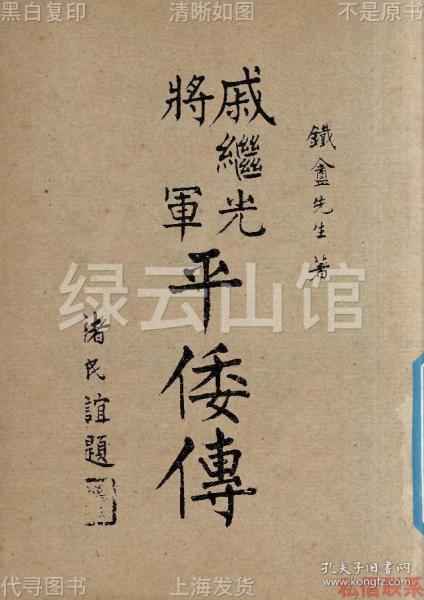 黑白复印 清晰如图 不是原书
鐵盦先生著
戚繼光
將軍
平倭傳
褚民誼題
绿云山馆
孔夫子旧书网
www.kongfz.com
代寻图书 上海发货 私信联系